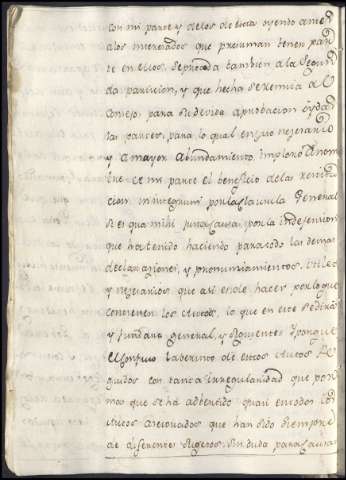 con mi parte y de los de esta oyendo a mas
a los interesados que presuman tener par
te en ellos. Se proceda tambien a la segun
da particion, y que hecha se remita a el
Consejo, para su devida aprobacion oydas
las partes, para lo qual en caso necesario
y a mayor abundamiento, imploro a nom
bre de mi parte el beneficio de la restitu
cion in integrum por la clausula General
si qua mihi justa causa, por la indefension
que ha tenido haciendo para todo las demas
declaraciones, y pronunciamientos, utiles
y necesarios que asi es de hacer por lo que
contienen los Autos, lo que en este Pedim.
y fundada general, y siguiente y porque
el confuso laberinto de estos Autos se
guidos con tanta irregularidad que por
mas que se ha advertido quasi en todos los
Autos acesorados que han sido siempre
de diferentes sugetos. Sin duda para